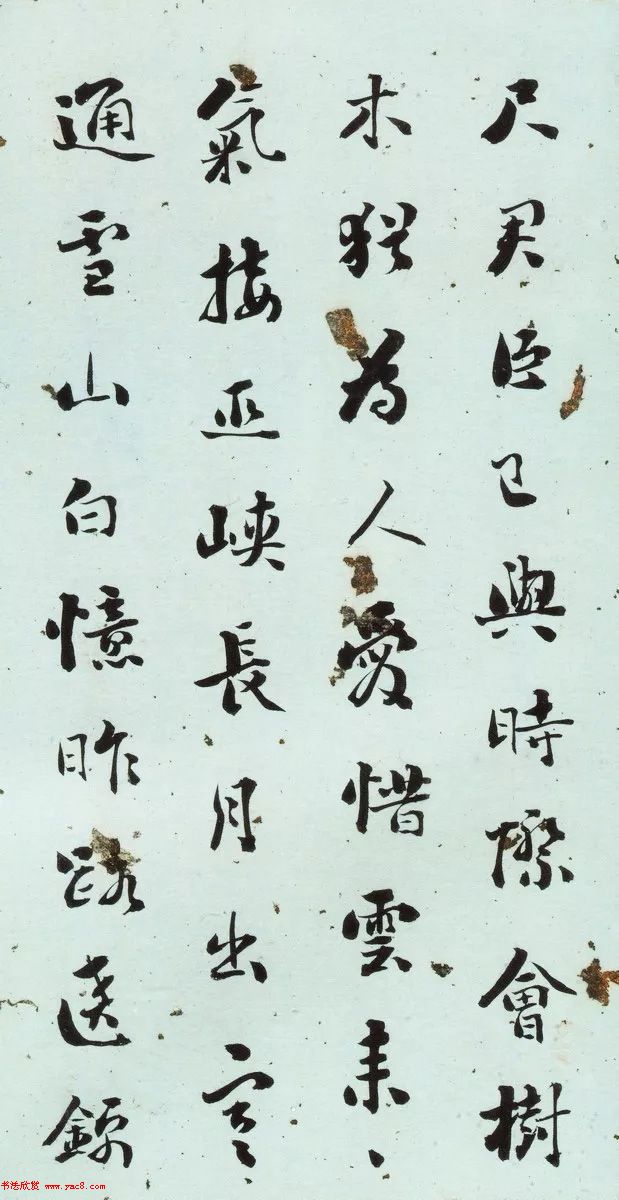 尺君臣已與時際會樹
木猶為人愛惜雲来
氣接巫峽長月出寒
通雪山白憶昨路遶錦
书法欣赏 www.yac8.com